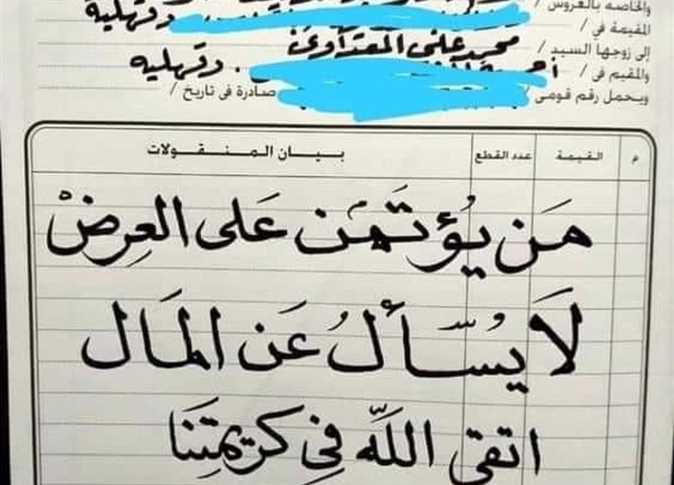 والخاصه بالعروس /
المقيمة في / دقهلية
إلى زوجها السيد / محمد علي المعداوي
والمقيم في / دقهليه
ويحمل رقم قومى / صادرة فى تاريخ /
م القيمة عدد القطع بيان المنقولات
مَن يُؤتَمَن عَلى العِرضْ
لَا يُسأَلُ عَن المَال
اتقي اللَّه فِي كَريمتِنَا